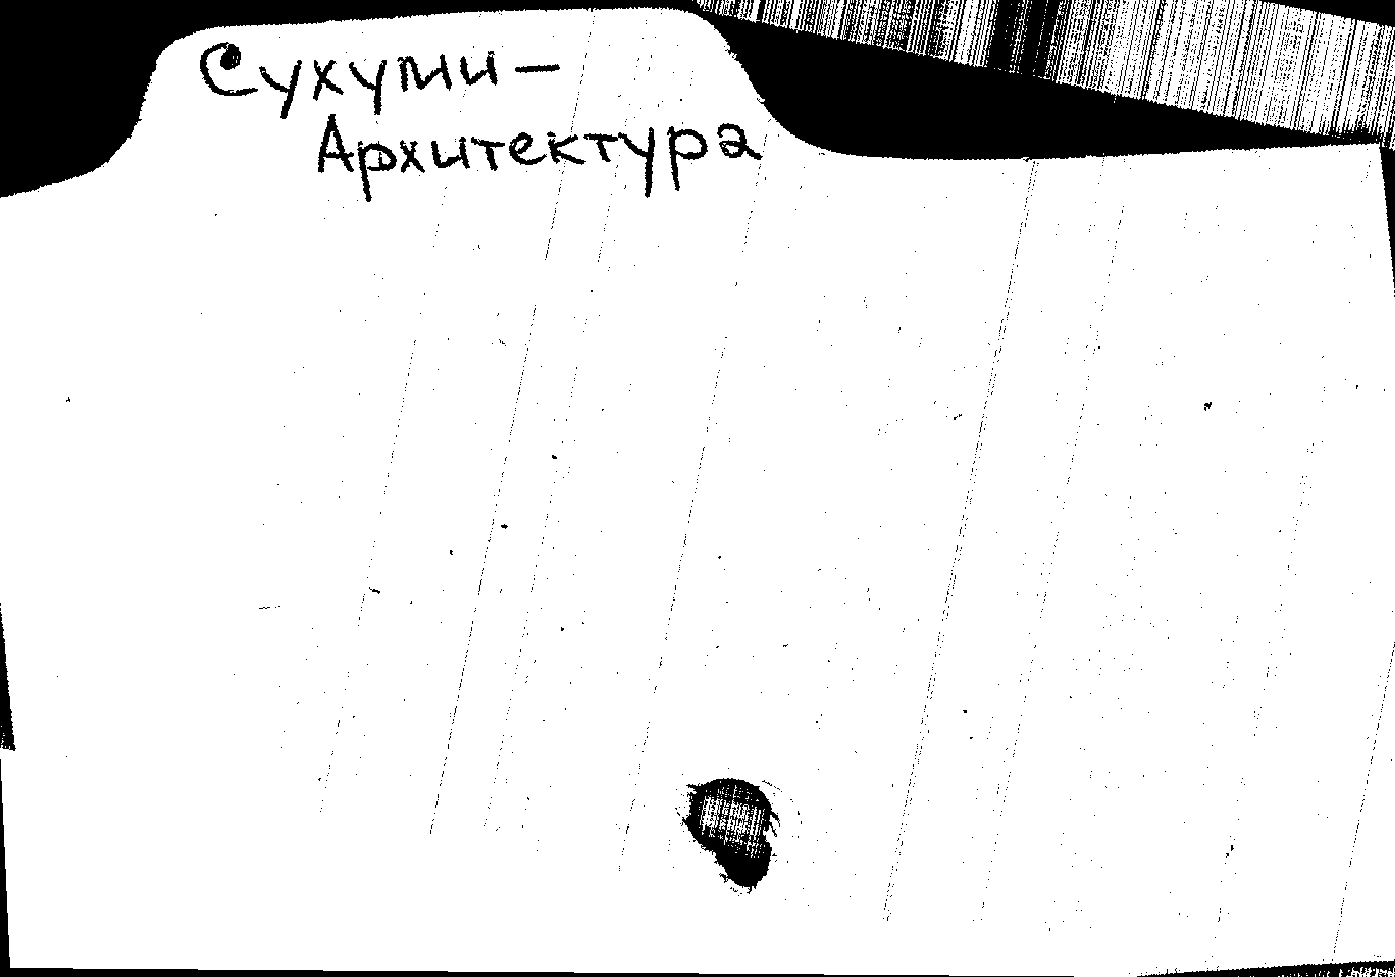 Сухуми –
Архитектура